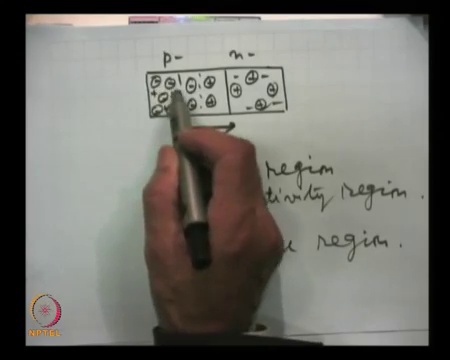 p- n-
region
tivity region.
region.
NPTEL